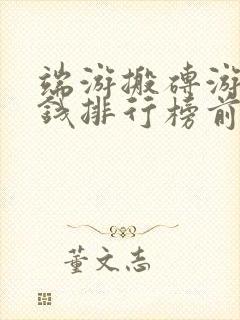 端游搬砖游
钱排行榜前
董文志